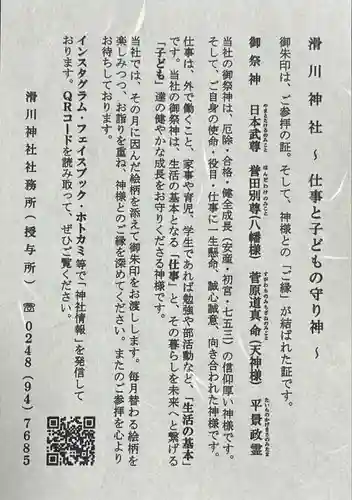 滑川神社 ～ 仕事と子どもの守り神 ～
御朱印は、ご参拝の証。そして、神様との「ご縁」が結ばれた証です。
御祭神 日本武尊 誉田別尊（八幡様） 菅原道真命（天神様） 平景政霊
当社の御祭神は、厄除・合格・健全成長（安産・初宮・七五三）の信仰厚い神様です。
そして、ご自身の使命・役目・仕事に一生懸命、誠心誠意、向き合われた神様です。
仕事は、外で働くこと、家事や育児、学生であれば勉強や部活動など、「生活の基本」
です。当社の御祭神は、生活の基本となる「仕事」と、その暮らしを未来へと繋げる
「子ども」達の健やかな成長をお守りくださる神様です。
当社では、その月に因んだ絵柄を添えて御朱印をお渡しします。毎月替わる絵柄を
楽しみつつ、お詣りを重ね、神様とのご縁を深めてください。またのご参拝を心より
お待ちしております。
インスタグラム・フェイスブック・ホトカミ等で「神社情報」を発信して
おります。QRコードを読み取って、ぜひご覧ください。
滑川神社社務所（授与所） ☏ 0248(94)7685